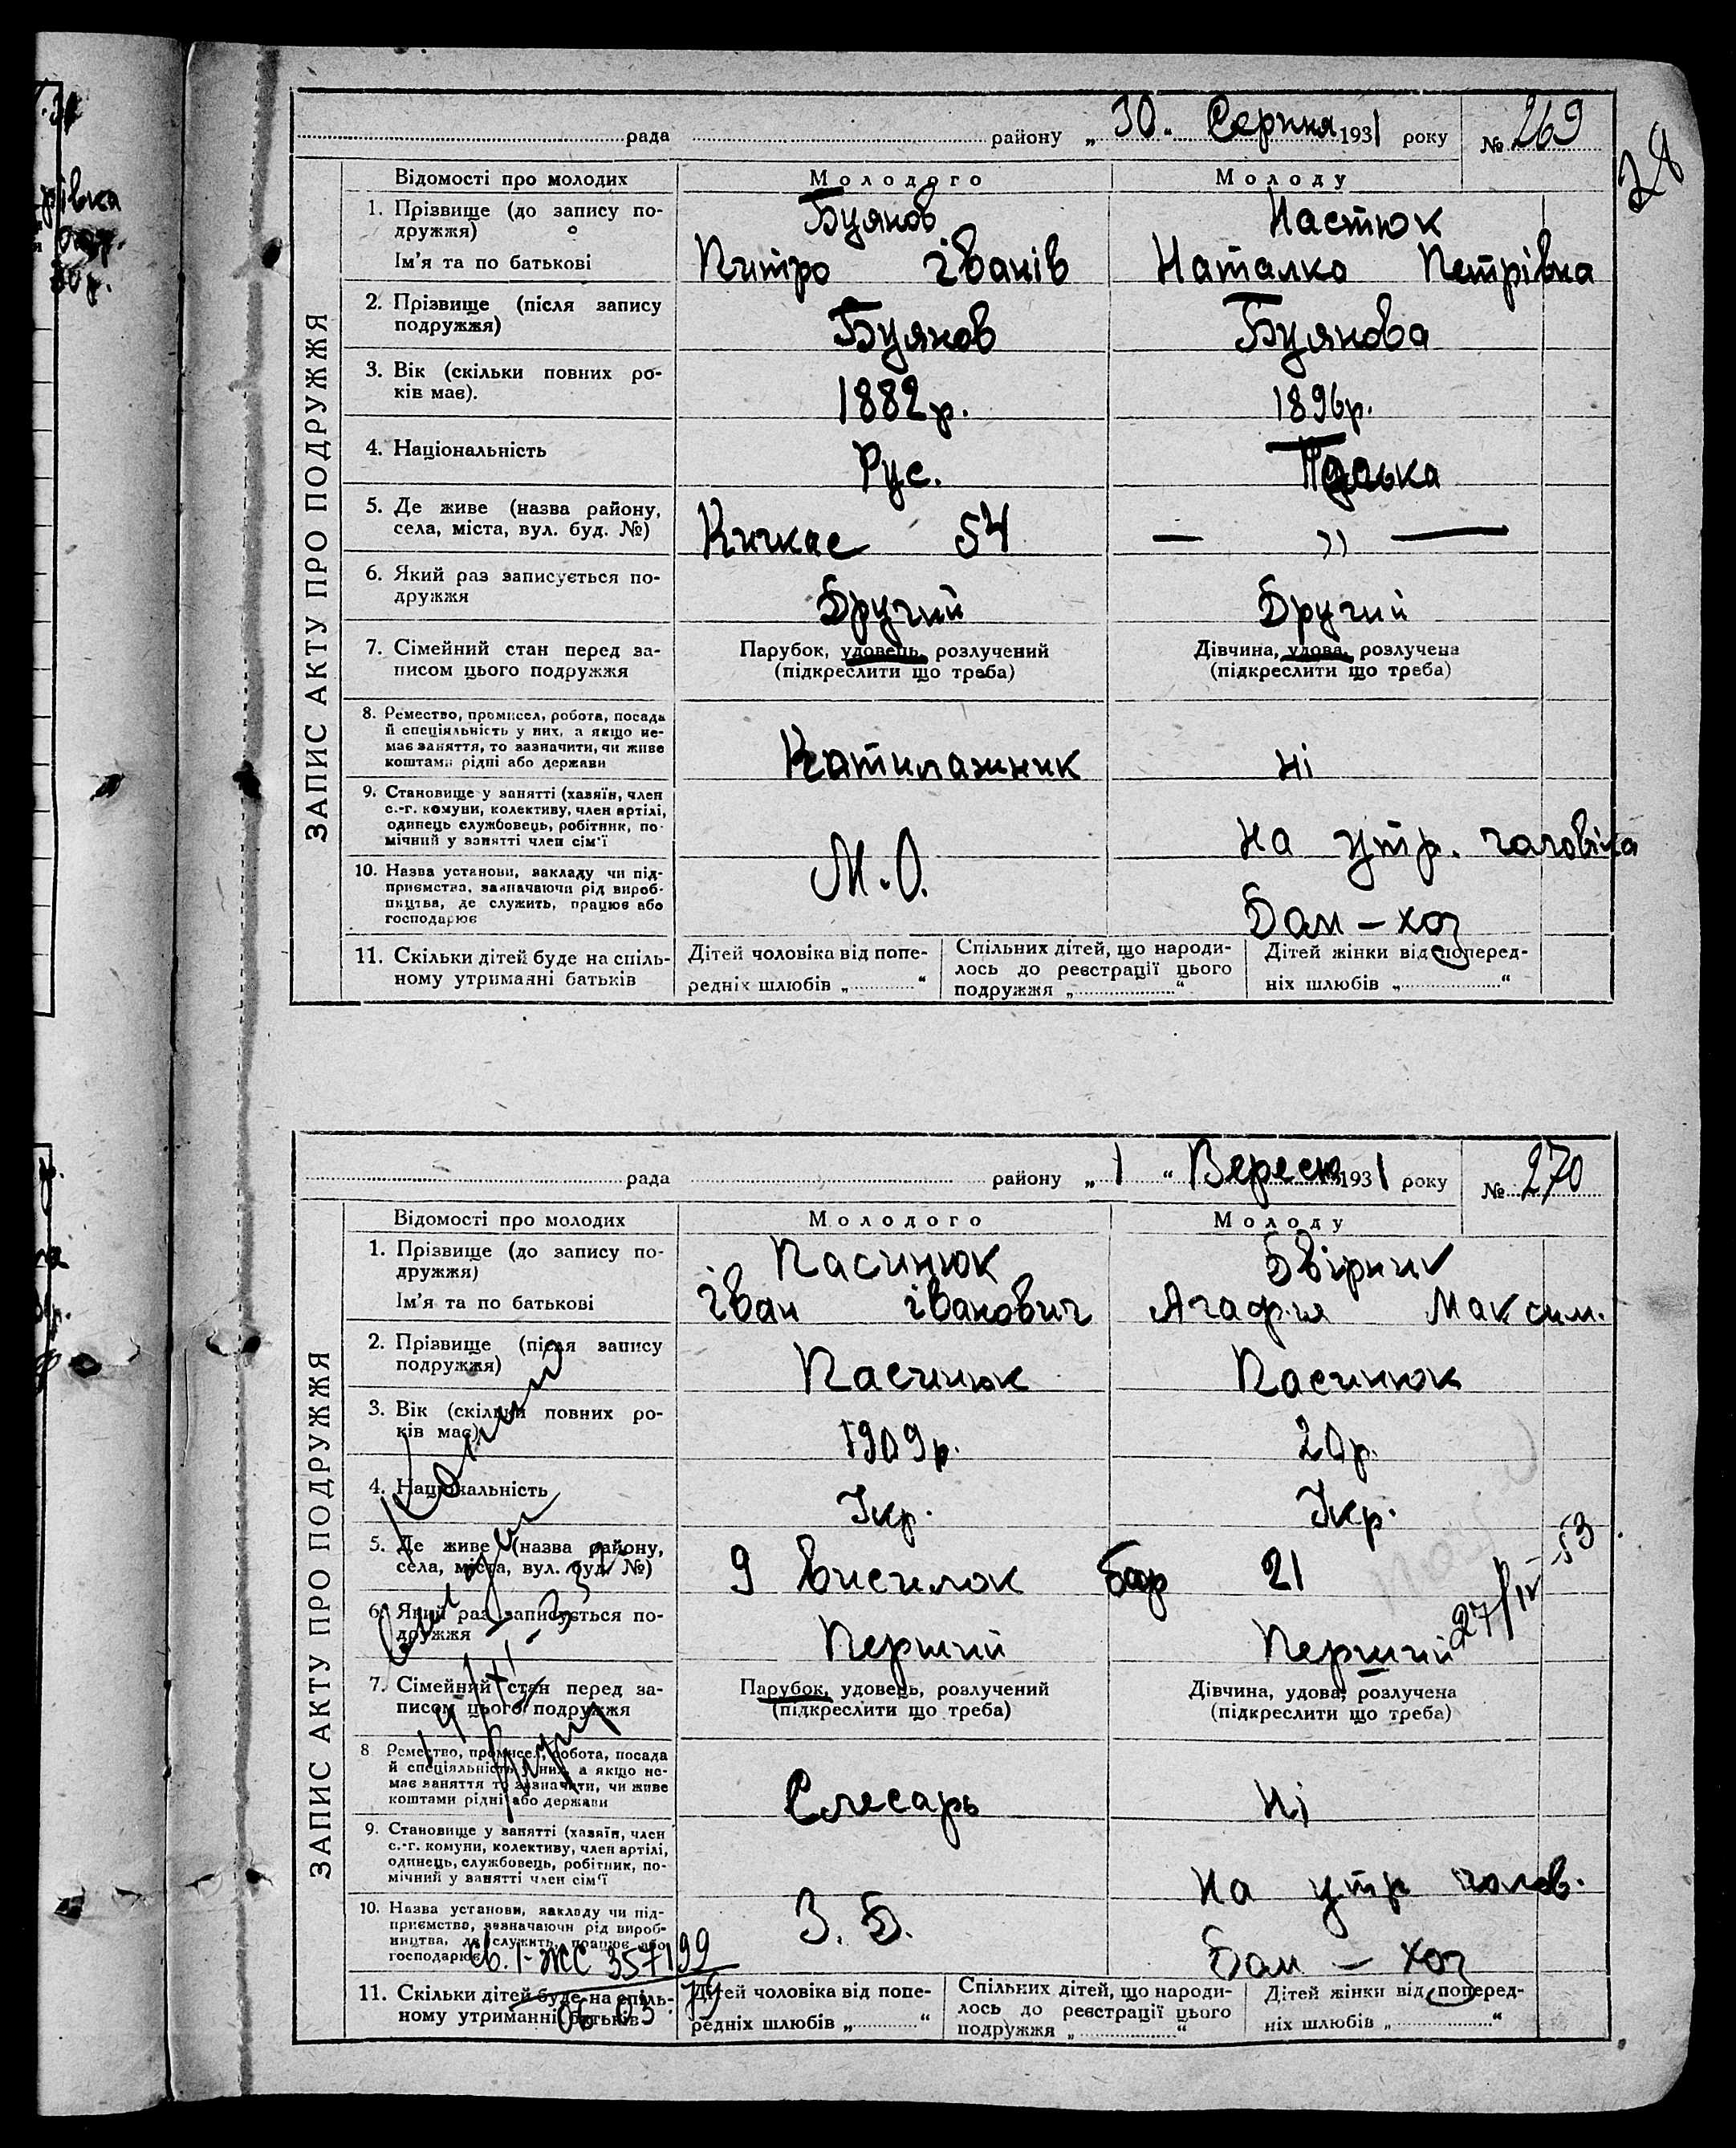 рада района „ 30 „ Серпня 1931 року № 269
28
ЗАПИС АКТУ ПРО ПОДРУЖЖЯ
Відомості про молодих Молодого Молоду
1. Прізвище (до запису подружжя) Буянов Настюк
Ім'я та по батькові Питро іванів Наталка Петрівна
2. Прізвище (після запису подружжя) Буянов Буянова
3. Вік (скільки повних років має). 1882р. 1896р.
4. Національність Рус. Полька
5. Де живе (назва району, села, міста, вул. буд. №) Кичкас 54 — „ —
6. Який раз записується подружжя Другий Другий
7. Сімейний стан перед записом цього подружжя Парубок, удовець, розлучений (підкреслити що треба) Дівчина, удова, розлучена (підкреслити що треба)
8. Ремество, промисел, робота, посада й спеціяльність у них, а якщо немає заняття, то зазначити, чи живе коштами рідні або держави ні
9. Становище у занятті (хазяїн, член с.-г. комуни, колективу, член артілі, одинець службовець, робітник, помічний у занятті член сім'ї На утр. чоловіка
10. Назва установи, закладу чи підприємства, зазначаючи рід виробництва, де служить, працює або господарює М.О. Дам – хоз
11. Скільки дітей буде на спільному утриманні батьків Дітей чоловіка від попередніх шлюбів „ “ Спільних дітей, що народилось до реєстрації цього подружжя „ “ Дітей жінки від попередніх шлюбів „ “
рада району „ 1 “ Вересн 1931 року № 270
ЗАПИС АКТУ ПРО ПОДРУЖЖЯ
Відомості про молодих Молодого Молоду
1. Прізвище (до запису подружжя) Пасинюк Двірник
Ім'я та по батькові іван іванович Агафия Максим.
2. Прізвище (після запису подружжя) Пасинюк Пасинюк
3. Вік (скільки повних років має) 1909р. 20р.
4. Національність Укр. Укр.
5. Де живе (назва району, села, міста, вул. буд. №) 9 висилок бар 21
6. Який раз записується подружжя Перший Перший
27/IV 53
7. Сімейний стан перед записом цього подружжя Парубок, удовець, розлучений (підкреслити що треба) Дівчина, удова, розлучена (підкреслити що треба)
8 Ремество, промисел, робота, посада й спеціяльність у них, а якщо немає заняття то зазначити, чи живе коштами рідні або держави Слесарь Ні
9. Становище у занятті (хазяїн, член с.-г. комуни, колективу, член артілі, одинець, службовець, робітник, помічний у занятті член сім'ї На утр чолов.
10. Назва установи, закладу чи підприємства, зазначаючи рід виробництва, де служить, працює або господарює З. Б. Дам – хоз
Св. I-ЖС 357199
06 03 79
11. Скільки дітей буде на спільному утриманні батьків Дітей чоловіка від попередніх шлюбів „ “ Спільних дітей, що народилось до реєстрації цього подружжя „ “ Дітей жінки від попередніх шлюбів „ “